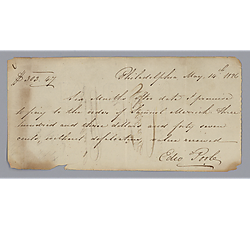 $303.47 Philadelphia May 14th 1836
Six Months after date I promise
to pay to the order of Samuel Merrick three
hundred and three dollars and forty seven
cents, without defalcation, value received